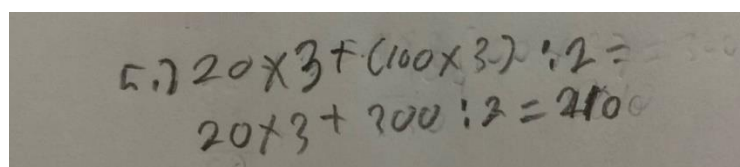 5.) 20×3+(100×3) :2=
20×3+300:2=210